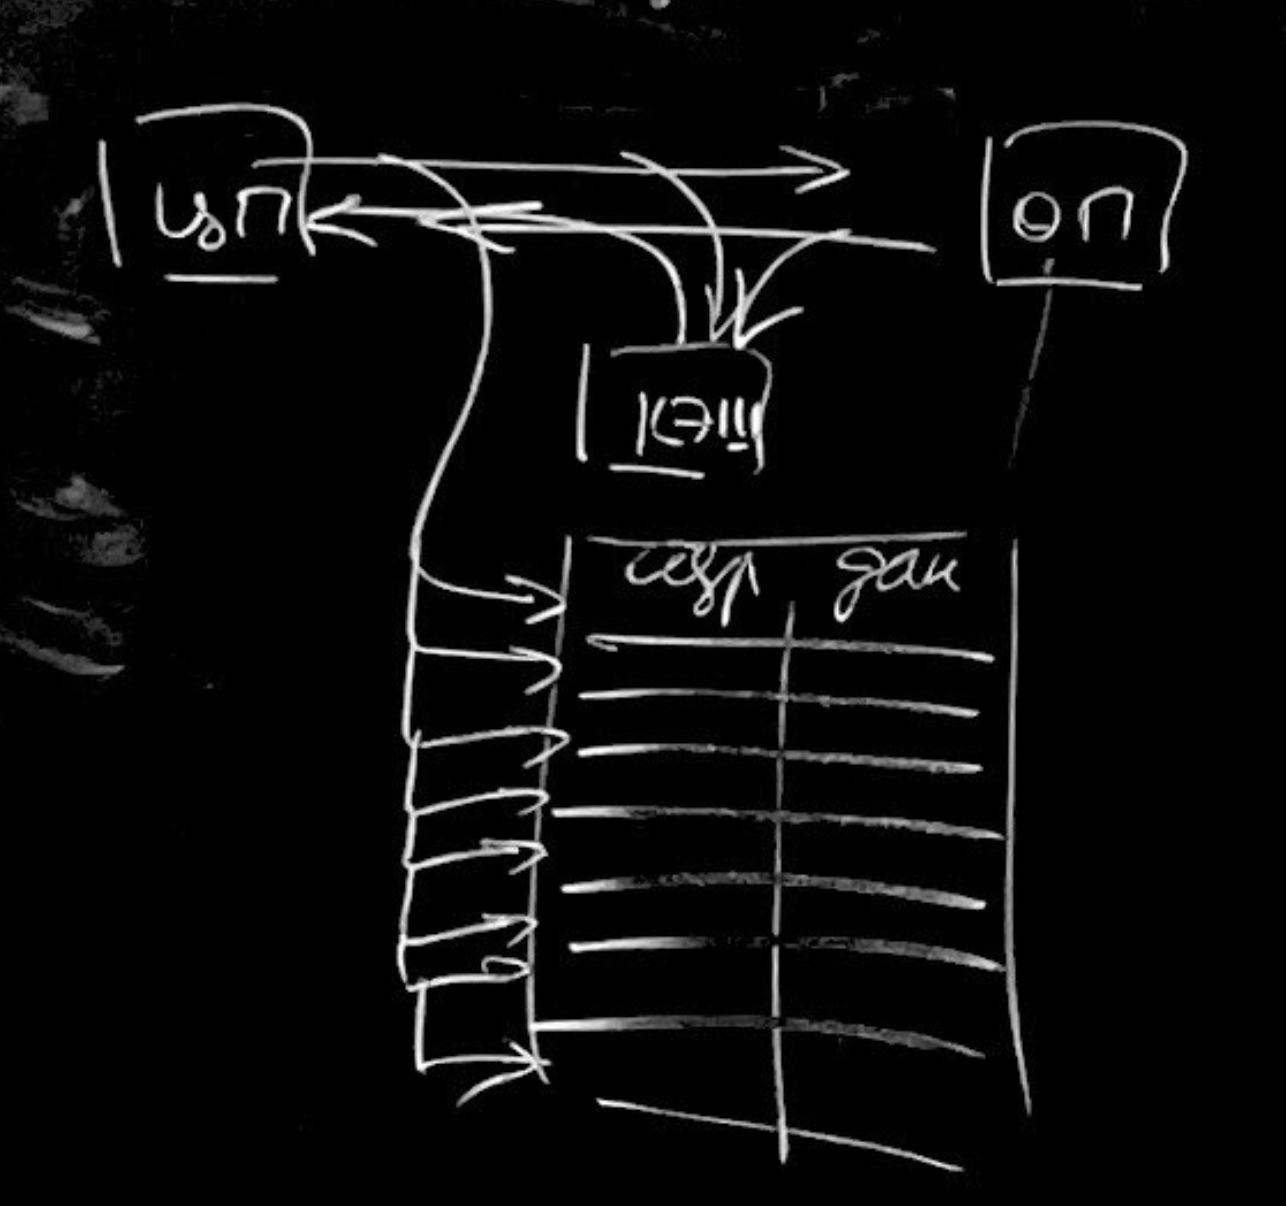 ЦП
ОП
КЭШ
адр дан